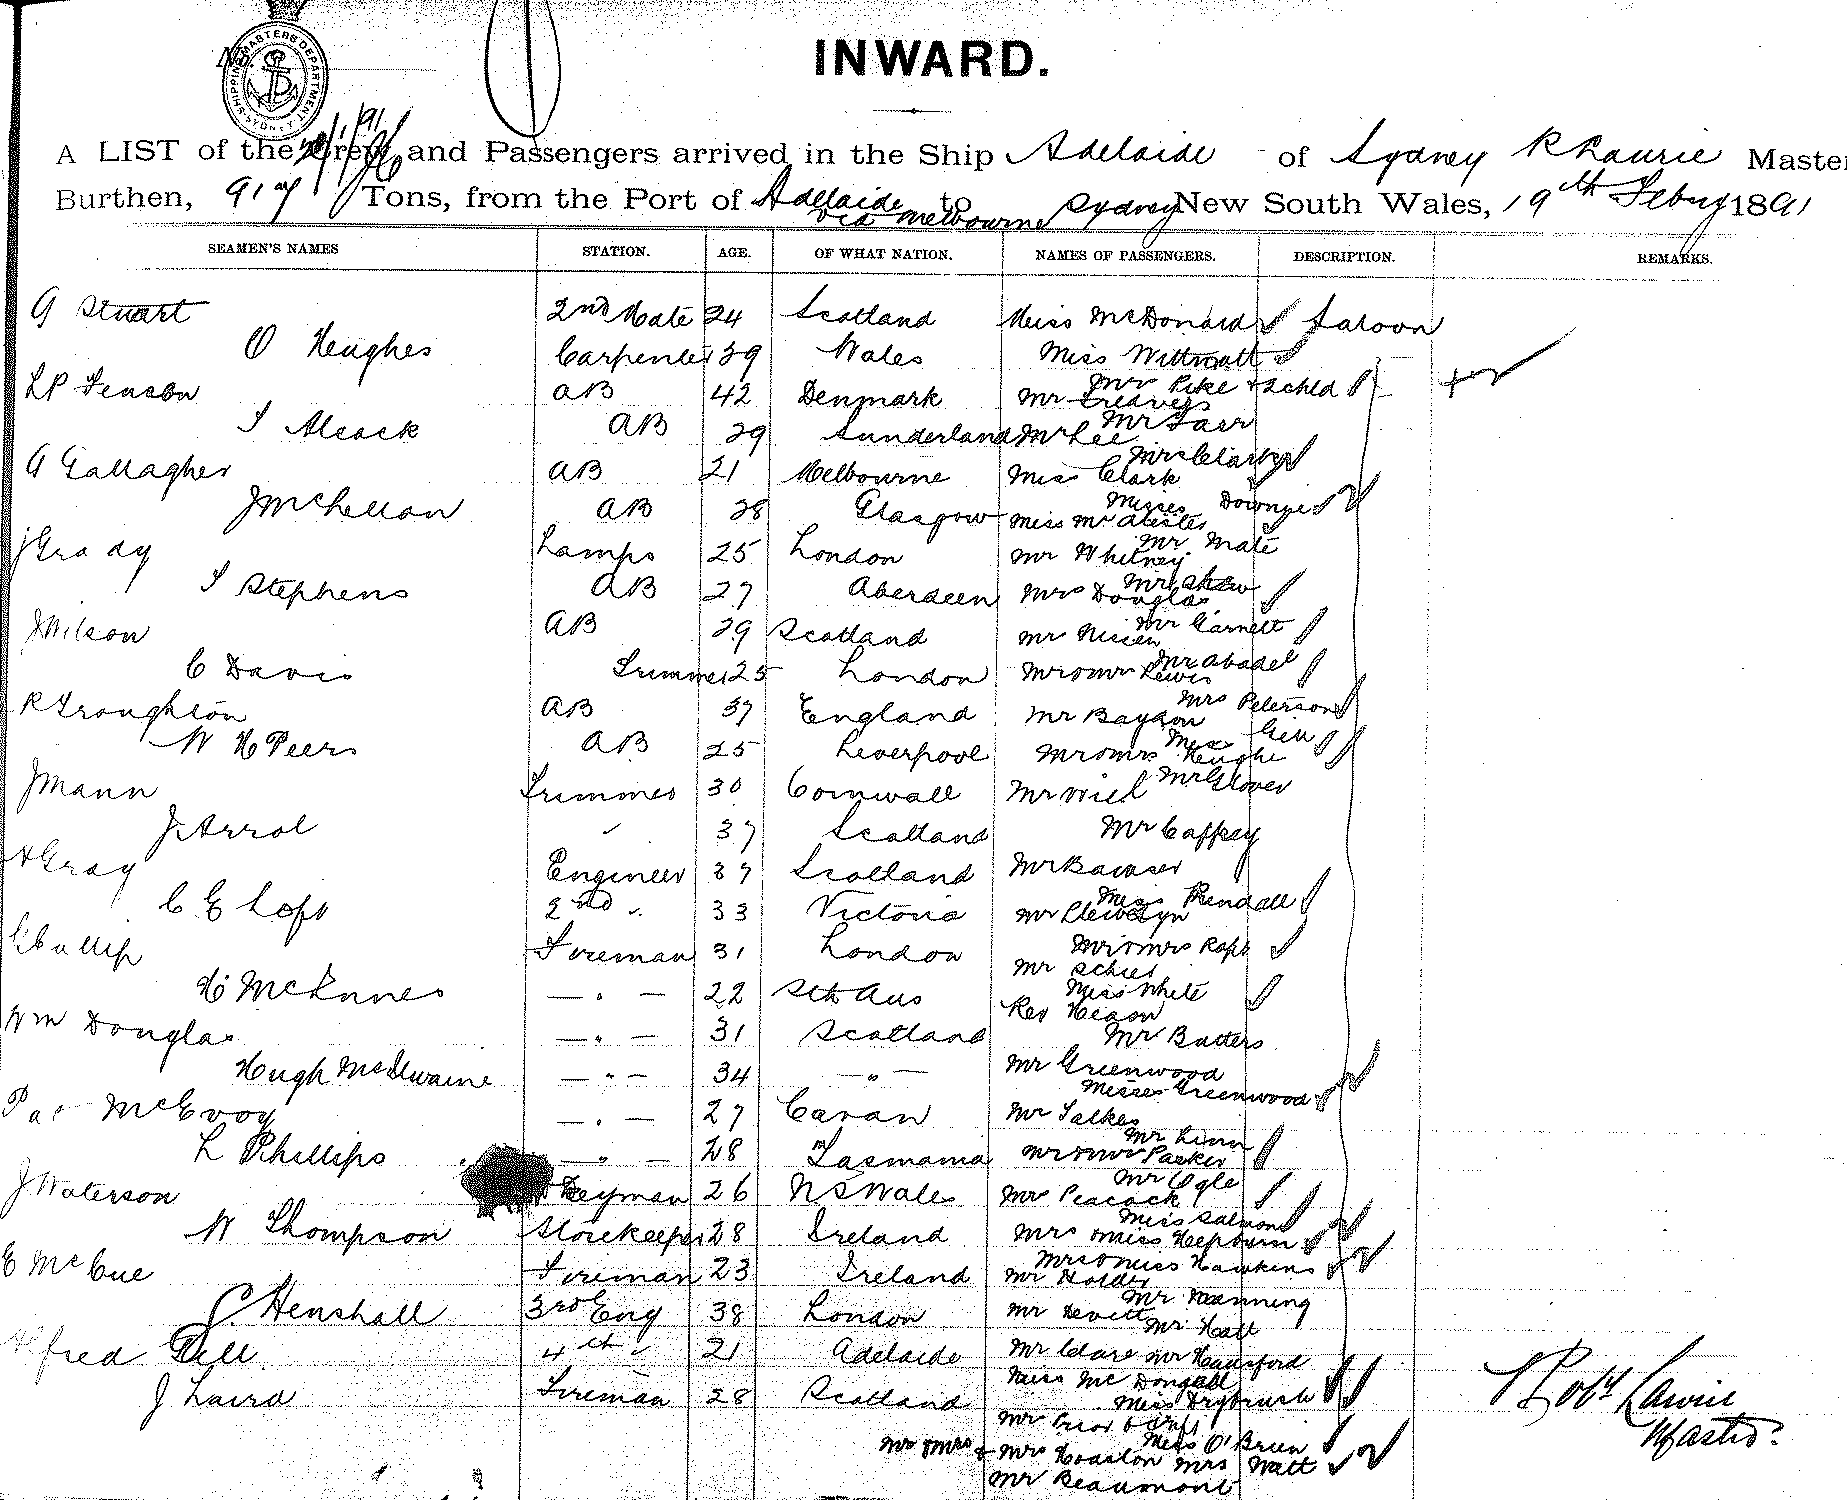 SHIPPING MASTERS DEPARTMENT SYDNEY
INWARD.
A LIST of the Crew and Passengers arrived in the Ship Adelaide of Sydney R Laurie Master
Burthen, Tons, from the Port of Adelaide via Melbourne to Sydney New South Wales, 19th Febry 1891
SEAMEN'S NAMES STATION. AGE. OF WHAT NATION. NAMES OF PASSENGERS. DESCRIPTION. REMARKS.
G Stuart 2nd Mate 24 Scotland Miss McDonard Saloon
O Hughes Carpenter 39 Wales Miss
LP AB 42 Denmark Mr Pike + 2 chld
Mr Greaves
J Alcock AB 29 Sunderland Mr Lee
G Gallagher AB 21 Melbourne Mrs Clark
Miss Clark
J McLellan AB 28 Glasgow Misses Downge
Miss
J Grady Lamps 25 London Mr Mate
Mr Whitney
J Stephens AB 27 Aberdeen Mr Shaw
Mrs Douglas
J Wilson AB 29 Scotland Mr Garnett
Mr
C Davis Trimmer 25 London Mr Abadel
Mr & Mrs Lewis
R Troughton AB 37 England Mrs Peterson
Mr
W H Peers AB 25 Liverpool Miss Gill
Mr & Mrs
J Mann Trimmer 30 Cornwall Mr Will Mr Glover
J Arrol 37 Scotland Mr Caffrey
A Gray Engineer 37 Scotland Mr
C E 2nd " 33 Victoria Miss Rendall
Mr Llewelyn
Fireman 31 London Mr & Mrs
Mr
H McInnes — " — 22 Sth Aus Miss White
Rev
Wm Douglas — " — 31 Scotland Mr Butters
Hugh McIlwaine — " — 34 — " — Mr Greenwood
Misses Greenwood
Pat McEvoy — " — 27 Cavan Mr
L Phillips — " — 28 Tasmania Mr Linn
Mr & Mrs Parker
J Waterson 26 N S Wales Mr Ogle
Mr Peacock
W Thompson Storekeeper 28 Ireland Miss Salmond
Mrs & Miss Hepburn
E McCue Fireman 23 Ireland Mrs & Miss Hawkins
Mr Holder
C Henshall 3rd Eng 38 London Mr Manning
Mr Hevitt Mr Hall
Alfred Dell 4th " 21 Adelaide Mr Clare Mr Hansford
Miss McDongall
J Laird Fireman 28 Scotland Miss Drybrush
Mr Prior
Miss O'Brien
Mr & Mrs + Mrs Hoaston Mrs Watt
Mr Beaumont
Robt Lawrie
Master